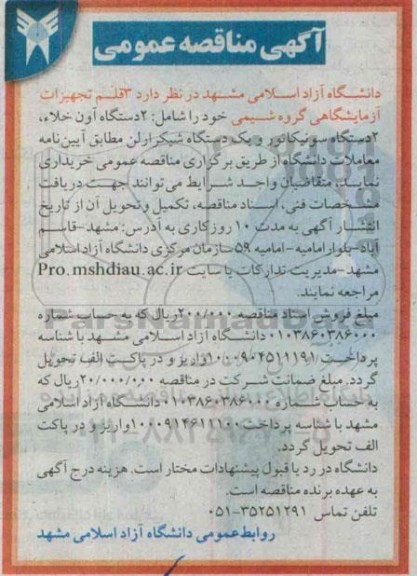 آگهی مناقصه عمومی
دانشگاه آزاد اسلامی مشهد در نظر دارد ۳قلم تجهیزات
آزمایشگاهی گروه شیمی خود را شامل: ۲دستگاه آون خلاء،
۲دستگاه سونیکاتور و یک دستگاه شیکرارلن مطابق آیین‌نامه
معاملات دانشگاه از طریق برگزاری مناقصه عمومی خریداری
نماید، متقاضیان واجد شرایط می‌توانند جهت دریافت
مشخصات فنی، اسناد مناقصه، تکمیل و تحویل آن از تاریخ
انتشار آگهی به مدت ۱۰ روز کاری به آدرس: مشهد-قاسم
آباد-بلوار امامیه-امامیه ۵۹ سازمان مرکزی دانشگاه آزاد اسلامی
مشهد-مدیریت تدارکات یا سایت Pro.mshdiau.ac.ir
مراجعه نمایند.
مبلغ فروش اسناد مناقصه ۲۰۰/۰۰۰ریال که به حساب شماره
۰۱۰۳۸۶۰۳۸۶۰۰۰ دانشگاه آزاد اسلامی مشهد با شناسه
پرداخت ۱۰۰۰۹۰۴۵۱۱۱۹۱واریز و در پاکت الف تحویل
گردد. مبلغ ضمانت شرکت در مناقصه ۲۰/۰۰۰/۰۰۰ریال که
به حساب شماره ۰۱۰۳۸۶۰۳۸۶۰۰۰ دانشگاه آزاد اسلامی
مشهد با شناسه پرداخت ۱۰۰۰۹۱۴۶۱۱۱۰۰واریز و در پاکت
الف تحویل گردد.
دانشگاه در رد یا قبول پیشنهادات مختار است. هزینه درج آگهی
به عهده برنده مناقصه است.
تلفن تماس ۳۵۲۵۱۲۹۱-۰۵۱
روابط عمومی دانشگاه آزاد اسلامی مشهد